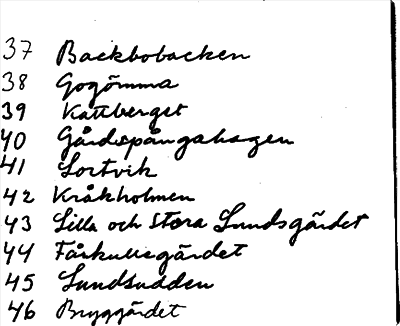 37 Backbobacken
38 Gogömma
39 Kattberget
40 Gårdspångahagen
41 Lortvik
42 Kråkholmen
43 Lilla och Stora Sundsgärdet
44 Fårkullegärdet
45 Sundsudden
46 Bryggärdet